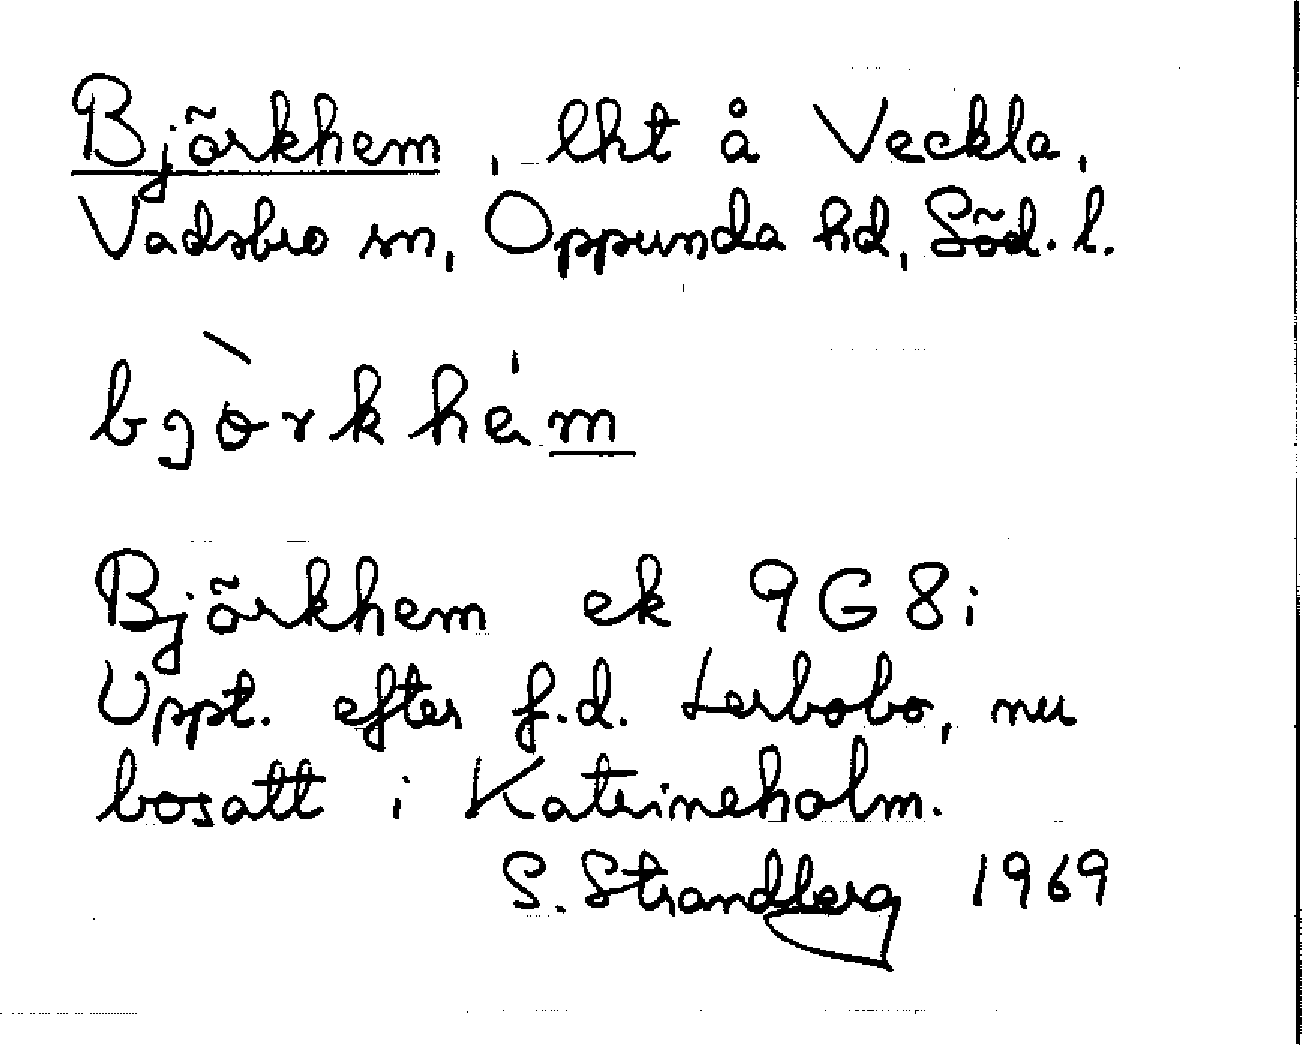 Björkhem, lht å Veckla,
Vadsbro sn, Oppunda hd, Söd. l.
bjòrkhém
Björkhem ek 9G8i
Uppt. efter f.d. Lerbobo, nu
bosatt i Katrineholm.
S. Strandberg 1969